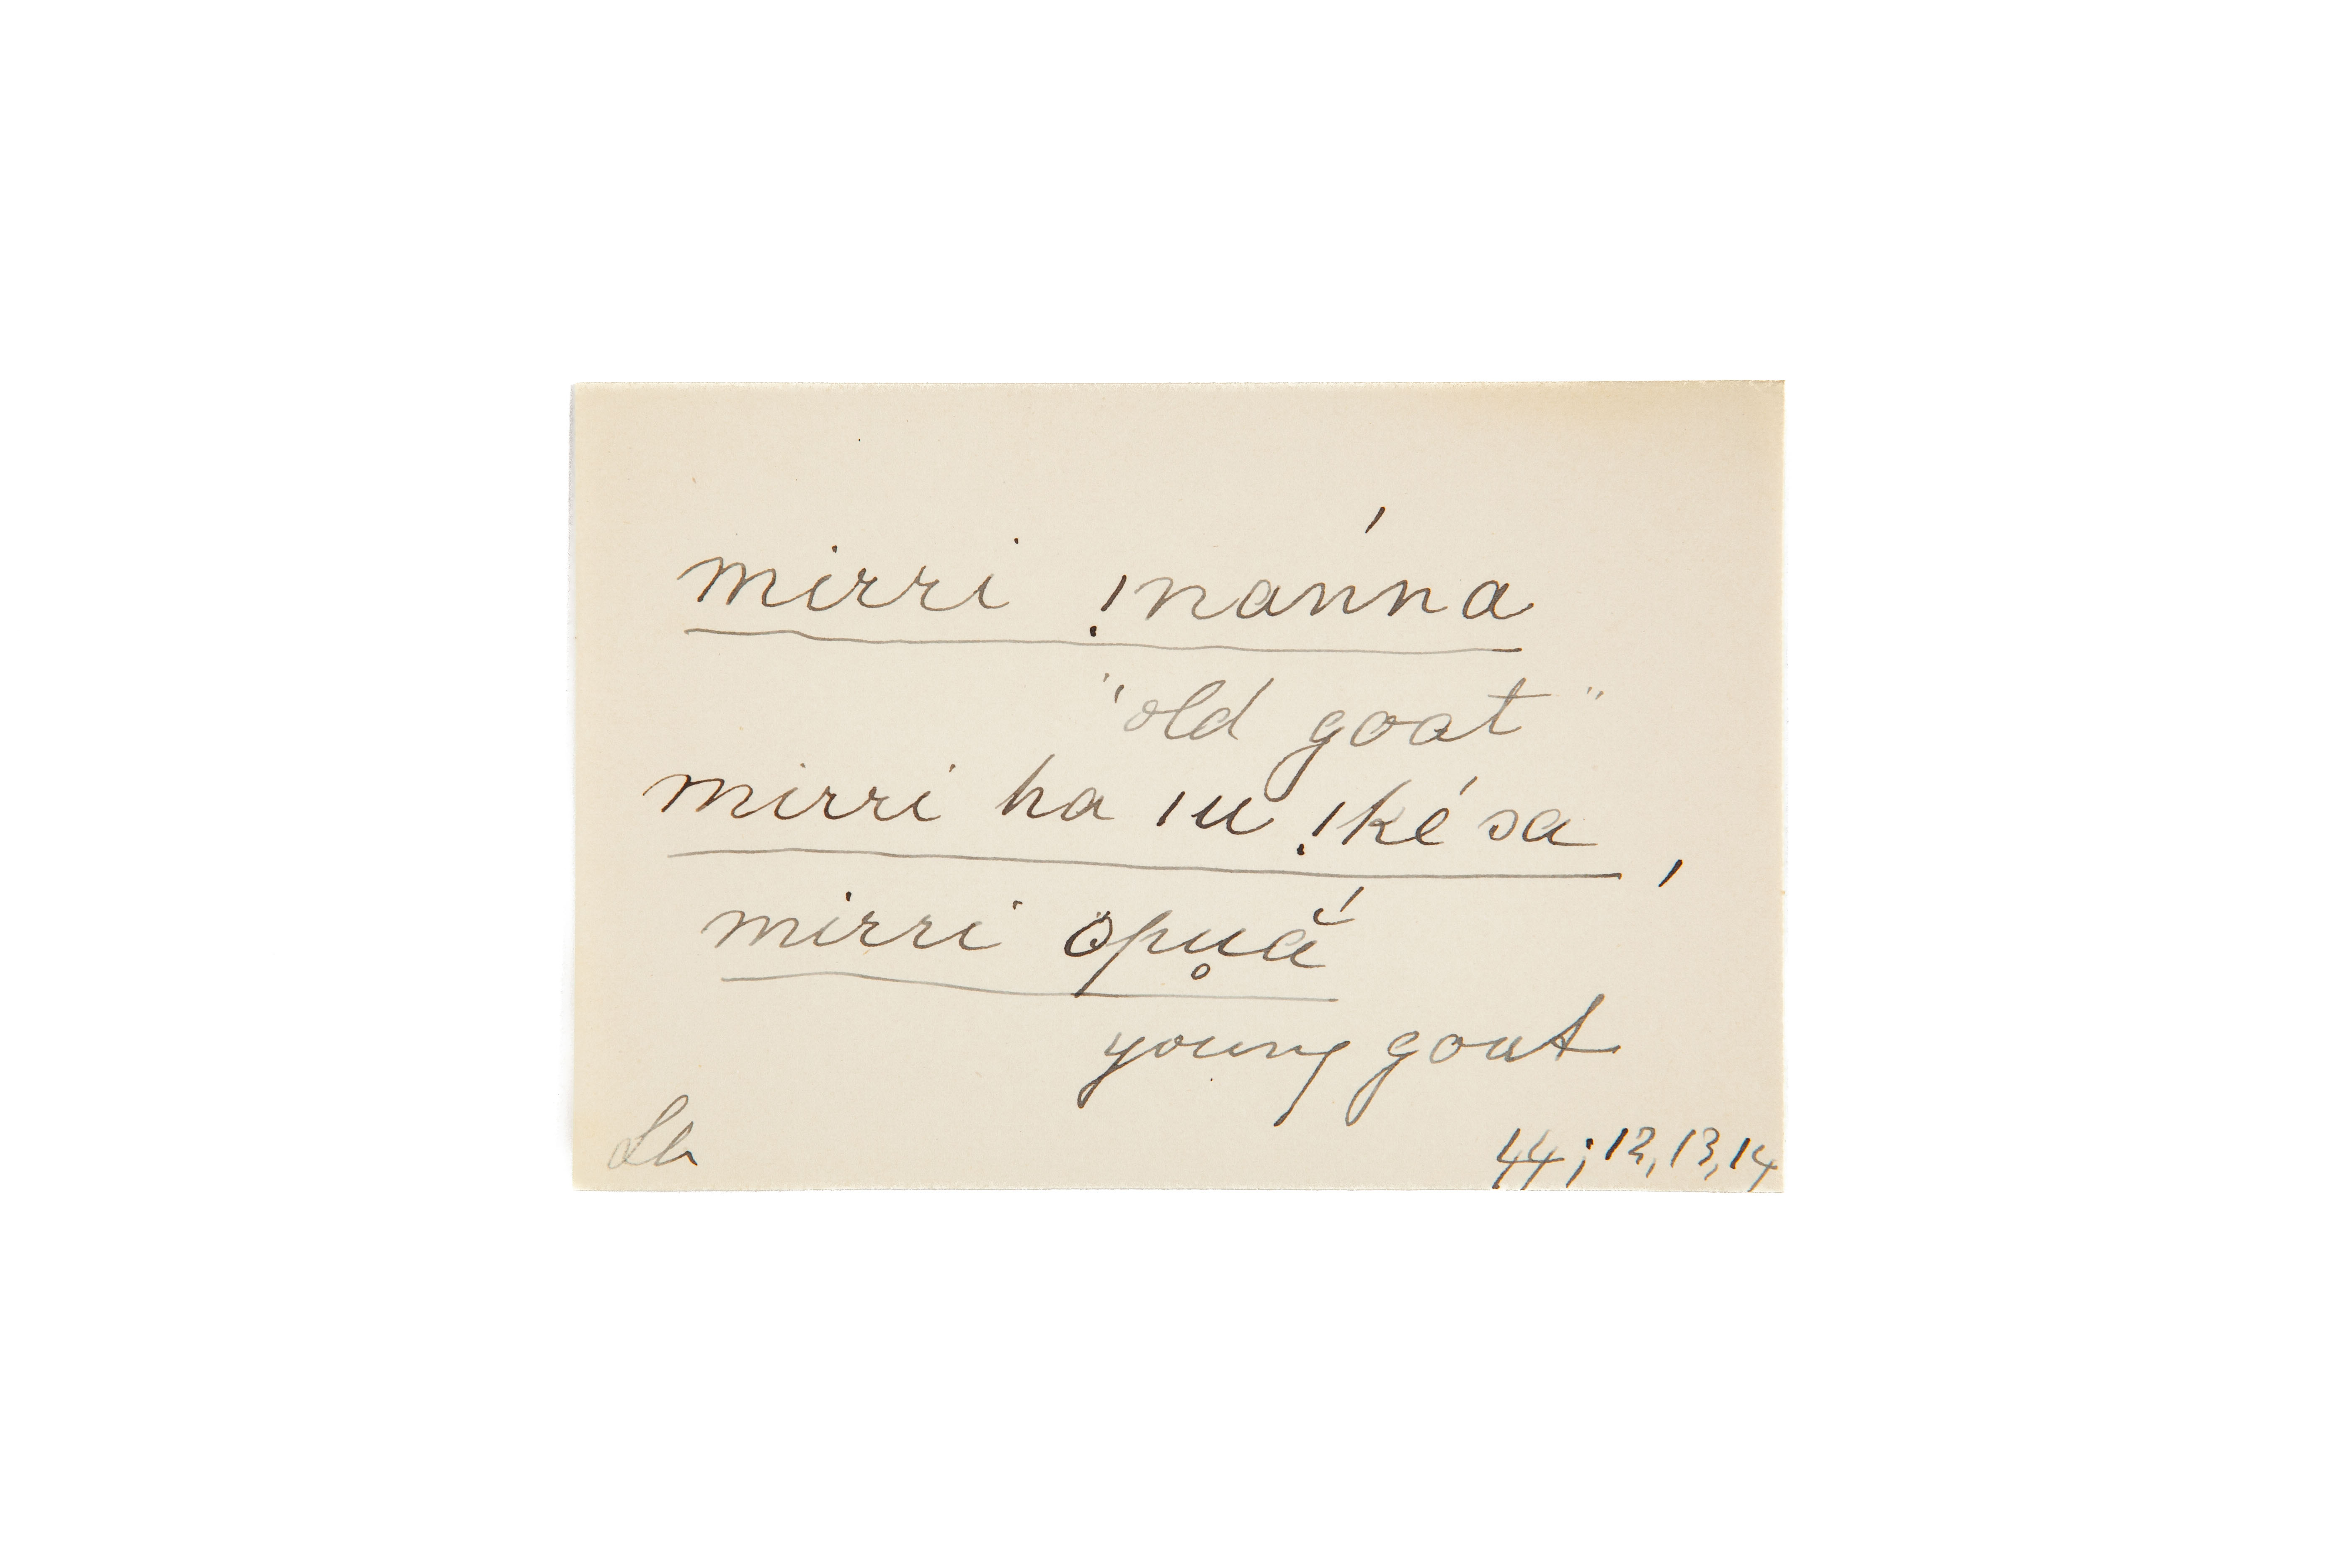 mirri !nánna
"old goat"
mirri ha ıu !késa,
mirri öpu̥ắ
young goat
44; 12, 13, 14